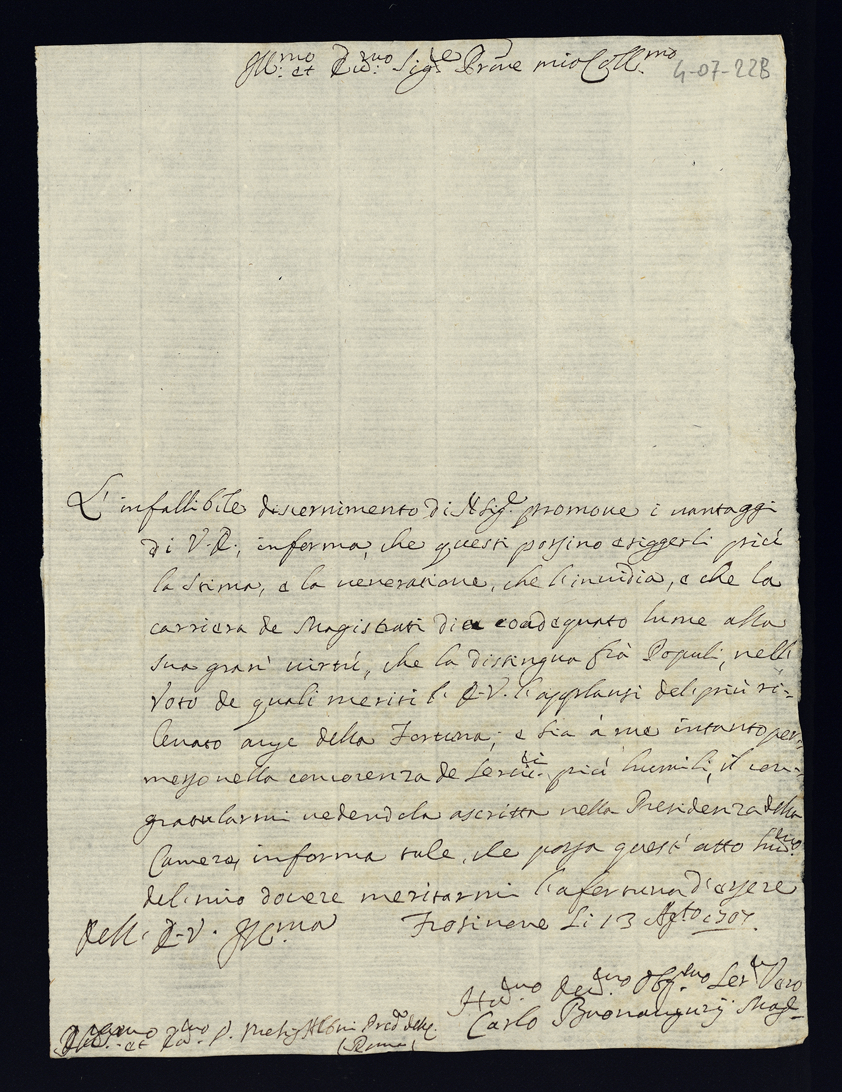 Ill.mo et R.mo Sig.re Prone mio Coll.mo
4-07-22B
L'infallibile discernimento di N Sig.e promoue i uantaggi
di V.S., informa, che questi possino esiggerli più
la stima, e la ueneratione, che l'inuidia, e che la
carriera de Magistrati dia coadequato lume alla
sua gran uirtù, che la distingua frà Populi, nell
Voto de quali meriti l'applausi del più ri-
leuato auge della Fortuna; e sia à me intanto per-
messo nella concorenza de Ser.ri più humili, il con-
gratularmi uedendola ascritta nella Presidenza della
Camera, informa tale, che possa quest'atto
del mio douere meritarmi la fortuna d'essere
Dell V. Ill.ma Frosinone Li 13 Ag.to 1707.
Hu.mo Deu.mo Obg.mo Ser.re Vero
Carlo Buonaugurij
et R.mo Albini Pred.
(Roma)